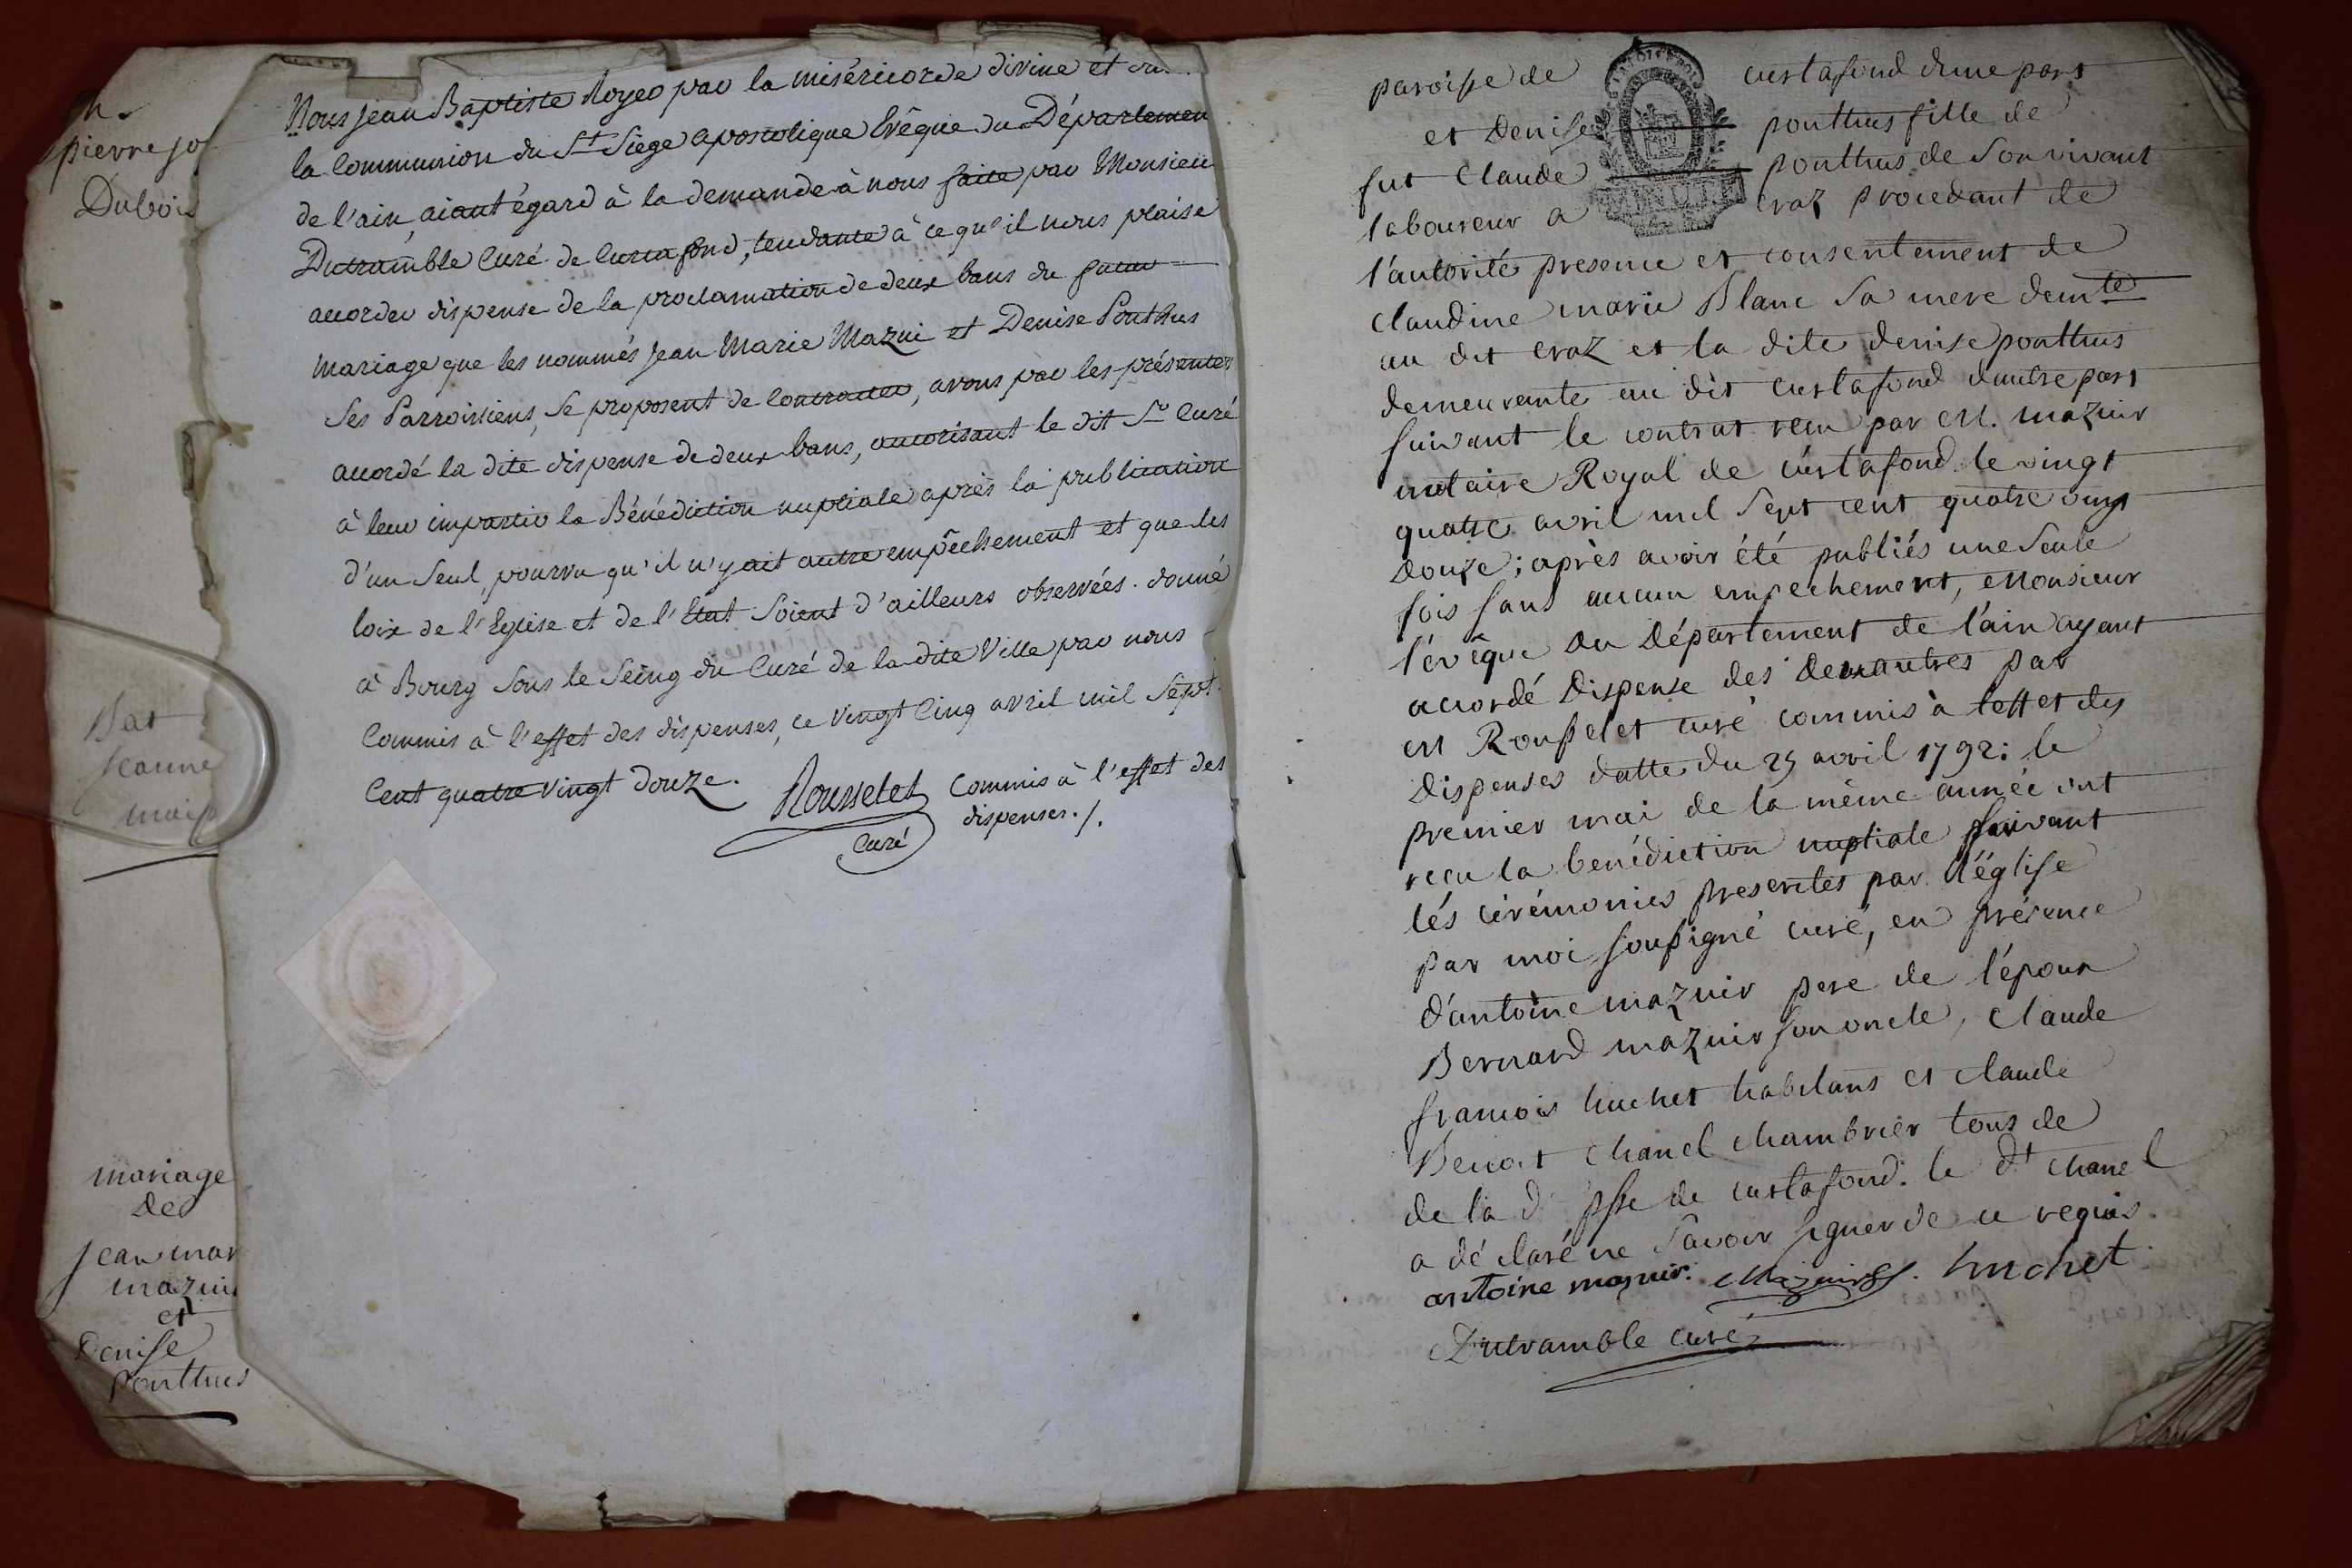 h.
pierre jo
Dubois
Bat
jeanne
mai
mariage
de
jean mar
mazui
et
Denise
ponthus
Nous jean Baptiste Royer par la miséricorde divine et da
la Communion du St Siège apostolique Evêque du Départemen
de l'ain, aiant égard à la demande à nous faite par Monsieu
Dutramble Curé de Curtafond, tendante à ce qu'il nous plaise
accorder dispense de la proclamation de deux bans du futur
mariage que les nommés jean Marie Mazui et Denise Ponthus
ses Parroissiens, se proposent de contracter, avons par les présentes
accordé la dite dispense de deux bans, autorisant le dit Sr Curé
à leur impartir la Bénédiction nuptiale après la publication
d'un seul, pourvu qu'il n'y ait autre empêchement et que les
loix de l'Eglise et de l'Etat soient d'ailleurs observées. donné
à Bourg sous le seing du Curé de la dite Ville par nous
Commis à l'effet des dispenses, ce vingt Cinq avril mil Sept
Cent quatre vingt douze.
Rousselet Commis à l'effet des
Curé dispenses./.
paroisse de curtafond dune part
et Denise ponthus fille de
fut Claude ponthus de Son vivant
laboureur a craz procedant de
l'autorité presence et consentement de
claudine marie Blanc Sa mere demte
au dit craz et la dite denise ponthus
demeurante au dit curtafond dautre part
suivant le contrat recu par M. mazuir
notaire Royal de curtafond le vingt
quatre avril mil Sept cent quatre vingt
Douze; après avoir été publiés une Seule
fois sans aucun empechement, Monsieur
l'évêque du Département de l'ain ayant
accordé Dispense des deux autres par
M Rousselet curé commis à leffet des
Dispenses datte du 25 avril 1792: le
premier mai de la même année ont
recu la benédiction nuptiale suivant
lés cérémonies prescrites par l'église
par moi soussigné curé, en présence
d'antoine mazuir pere de l'époux
Bernard mazuir son oncle, Claude
francois huchet habitans et claude
Benoit chanel chambrier tous de
de la d. psse de curtafond. le dt chanel
a déclaré ne savoir signer de ce requis.
antoine mazuir. Mazuir huchet
Dutramble curé